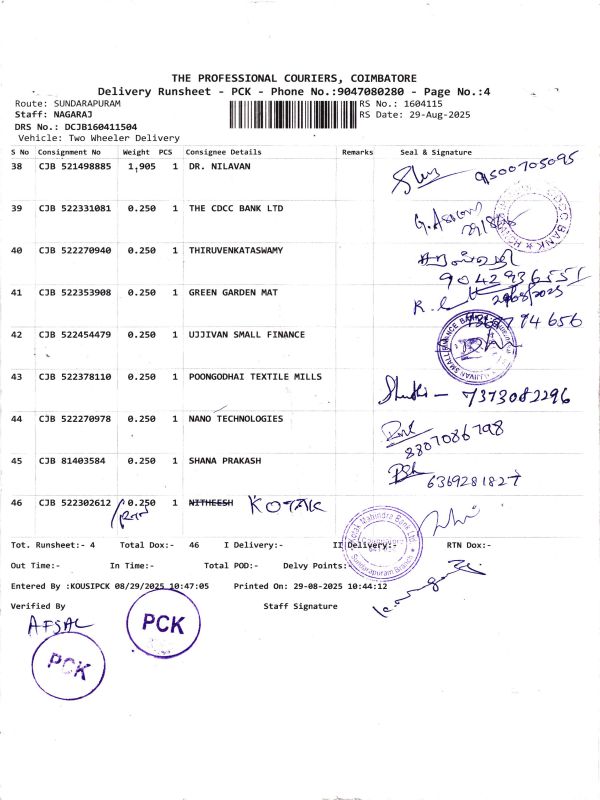 THE PROFESSIONAL COURIERS, COIMBATORE
Delivery Runsheet - PCK - Phone No.:9047080280 - Page No.:4
Route: SUNDARAPURAM
RS No.: 1604115
Staff: NAGARAJ
RS Date: 29-Aug-2025
DRS No.: DCJB160411504
Vehicle: Two Wheeler Delivery
S No Consignment No Weight PCS Consignee Details Remarks Seal & Signature
38 CJB 521498885 1,905 1 DR. NILAVAN
9500705095
39 CJB 522331081 0.250 1 THE CDCC BANK LTD
40 CJB 522270940 0.250 1 THIRUVENKATASWAMY
9042936551
41 CJB 522353908 0.250 1 GREEN GARDEN MAT
29/08/2025
42 CJB 522454479 0.250 1 UJJIVAN SMALL FINANCE
43 CJB 522378110 0.250 1 POONGODHAI TEXTILE MILLS
7373082296
44 CJB 522270978 0.250 1 NANO TECHNOLOGIES
8807086798
45 CJB 81403584 0.250 1 SHANA PRAKASH
6369281827
46 CJB 522302612 0.250 1 NITHEESH KOTAK
Kotak Mahindra Bank Ltd.
Sundarapuram Branch
Tot. Runsheet:- 4 Total Dox:- 46 I Delivery:- II Delivery:- RTN Dox:-
Out Time:- In Time:- Total POD:- Delvy Points:-
Entered By :KOUSIPCK 08/29/2025 10:47:05 Printed On: 29-08-2025 10:44:12
Verified By Staff Signature
AFSAL
PCK
PCK